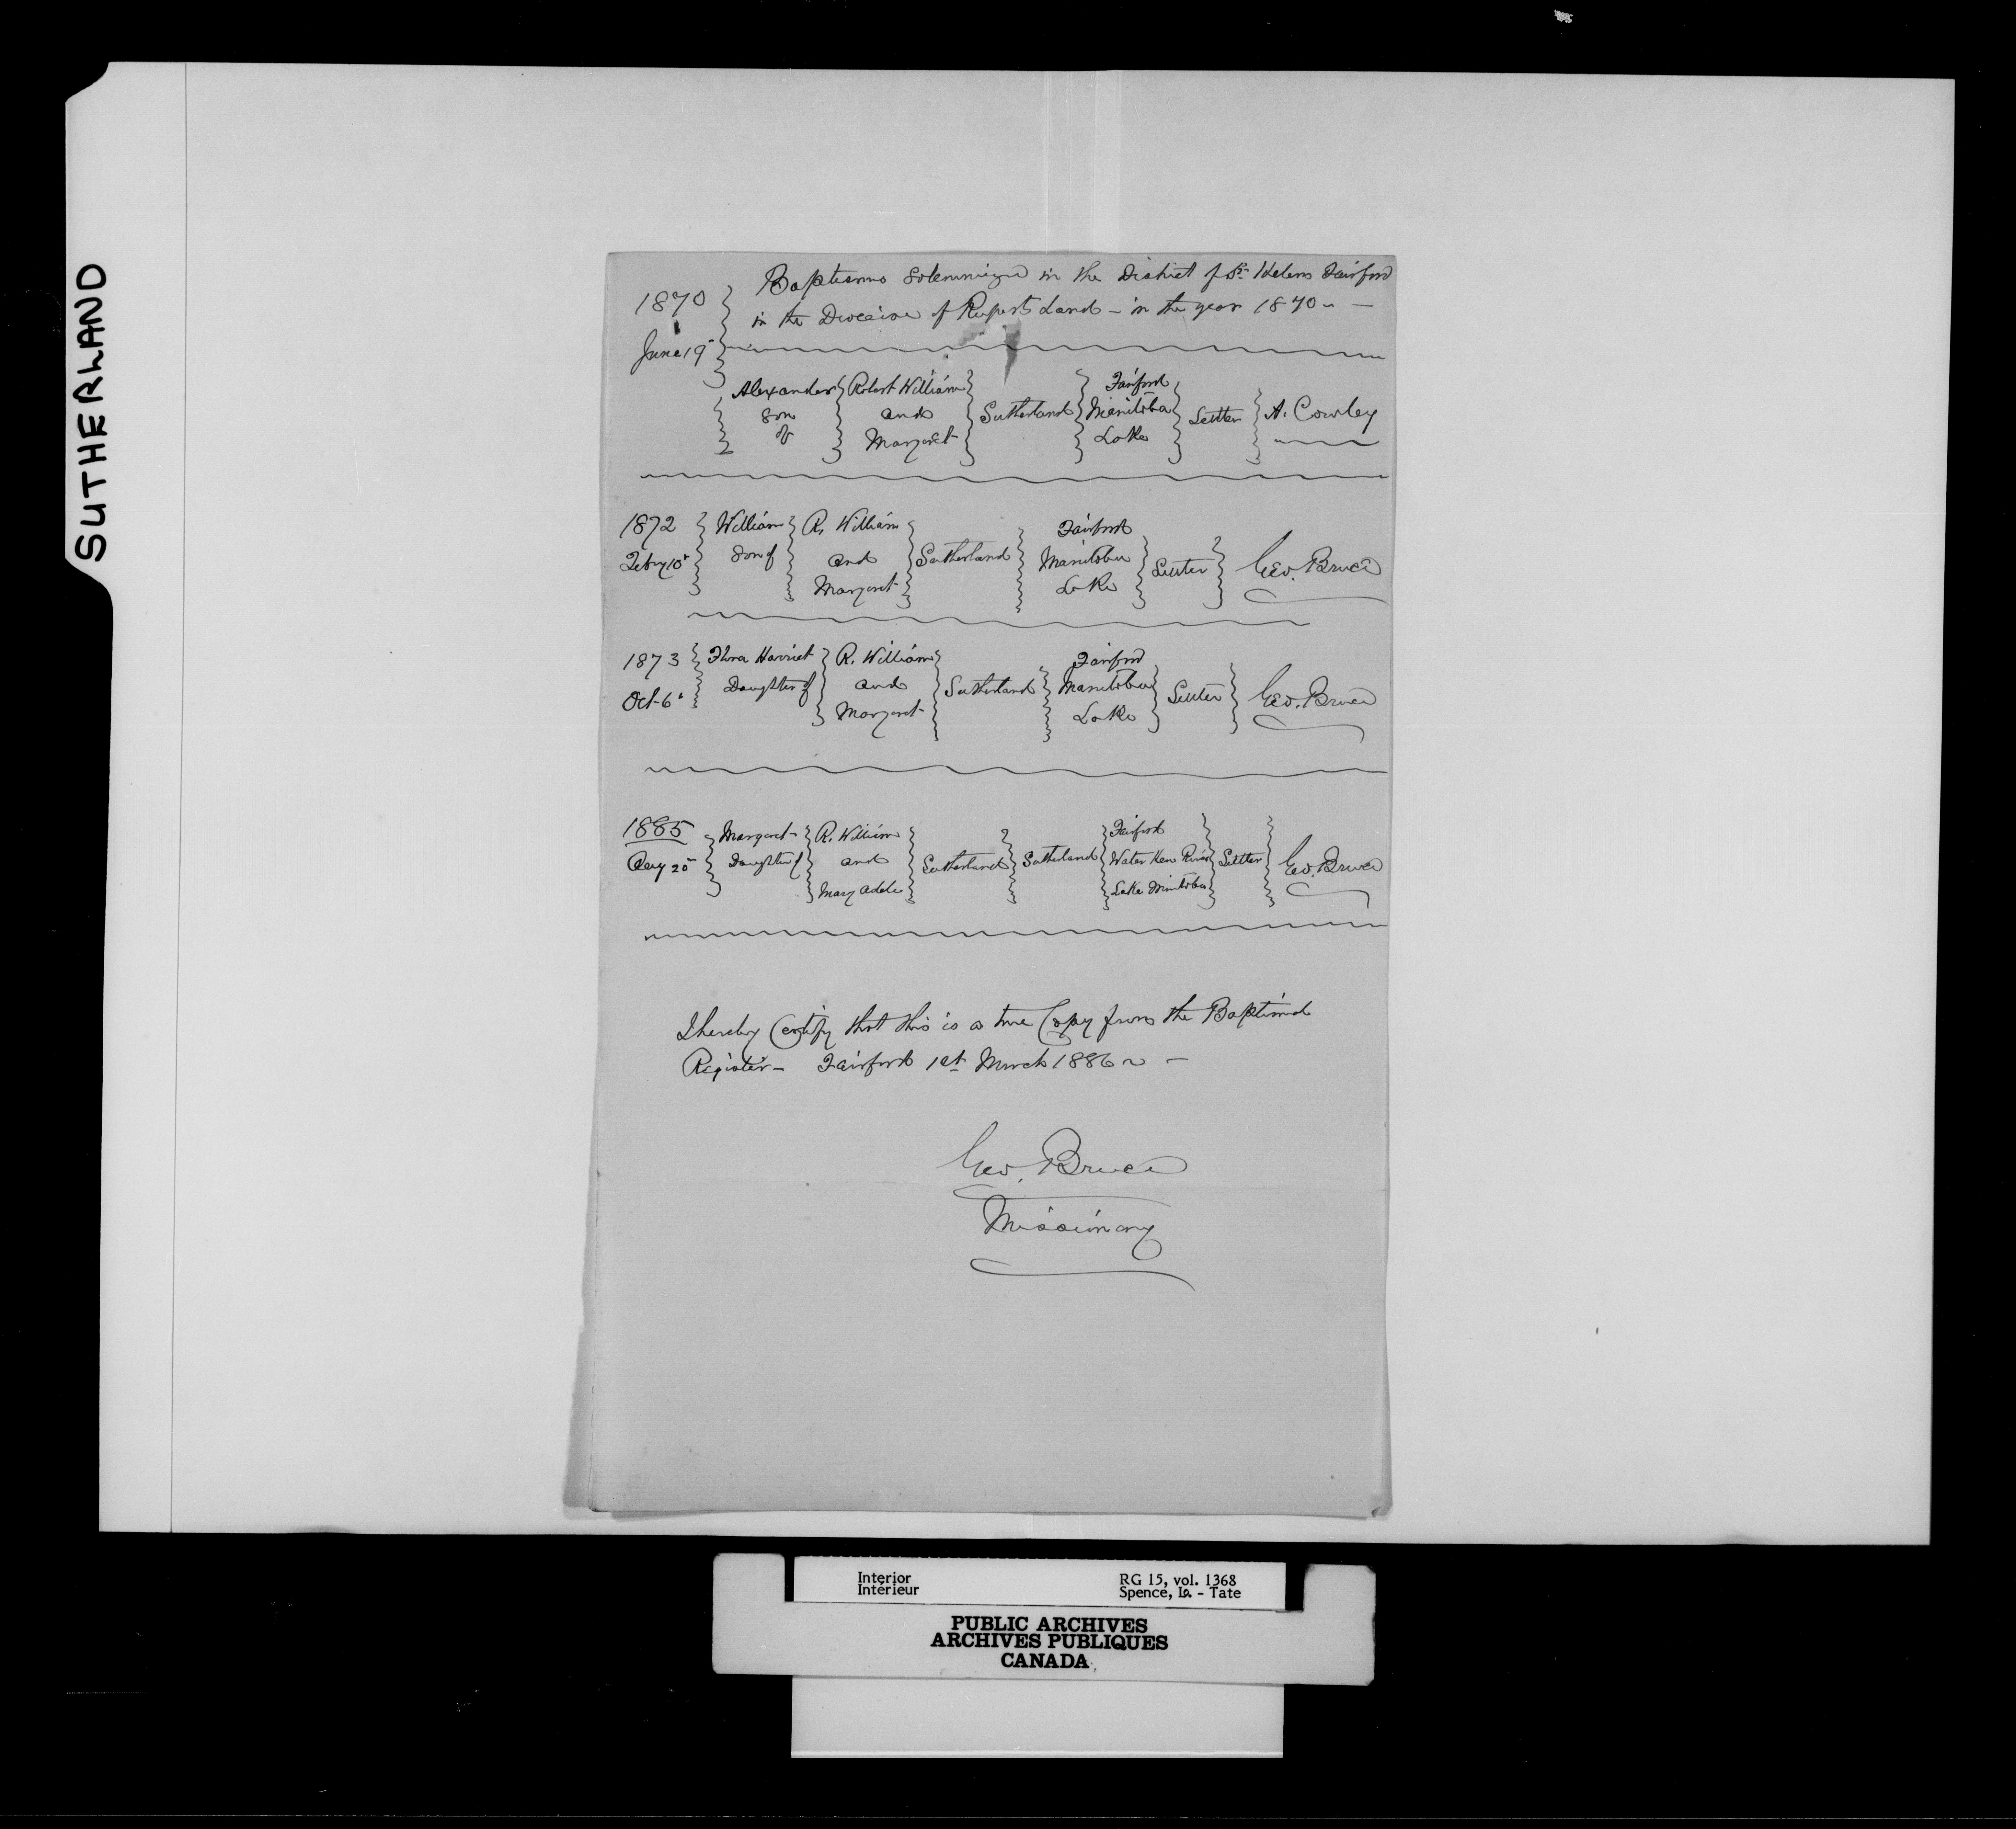 SUTHERLAND
Baptisms Solemnized in the District of St Helens Fairford
1870
in the Diocese of Ruperts Land - in the year 1870 -
June 19
Alexander son of } Robert William and Margaret } Sutherland } Fairford Manitoba Lake } Settler } A. Cowley
1872 Feby 10 } William son of } R. William and Margaret } Sutherland } Fairford Manitoba Lake } Settler } Geo. Bruce
1873 Oct 6 } Flora Harriet Daughter of } R. William and Margaret } Sutherland } Fairford Manitoba Lake } Settler } Geo. Bruce
1885 25 } Margaret Daughter of } R. William and Mary Adele } Sutherland } Sutherland } Fairford Water Hen River Lake Manitoba } Settler } Geo. Bruce
I hereby Certify that this is a true Copy from the Baptismal
Register - Fairford 1st March 1886 -
Geo. Bruce
Missionary
Interior
Intérieur
RG 15, vol. 1368
Spence, - Tate
PUBLIC ARCHIVES
ARCHIVES PUBLIQUES
CANADA